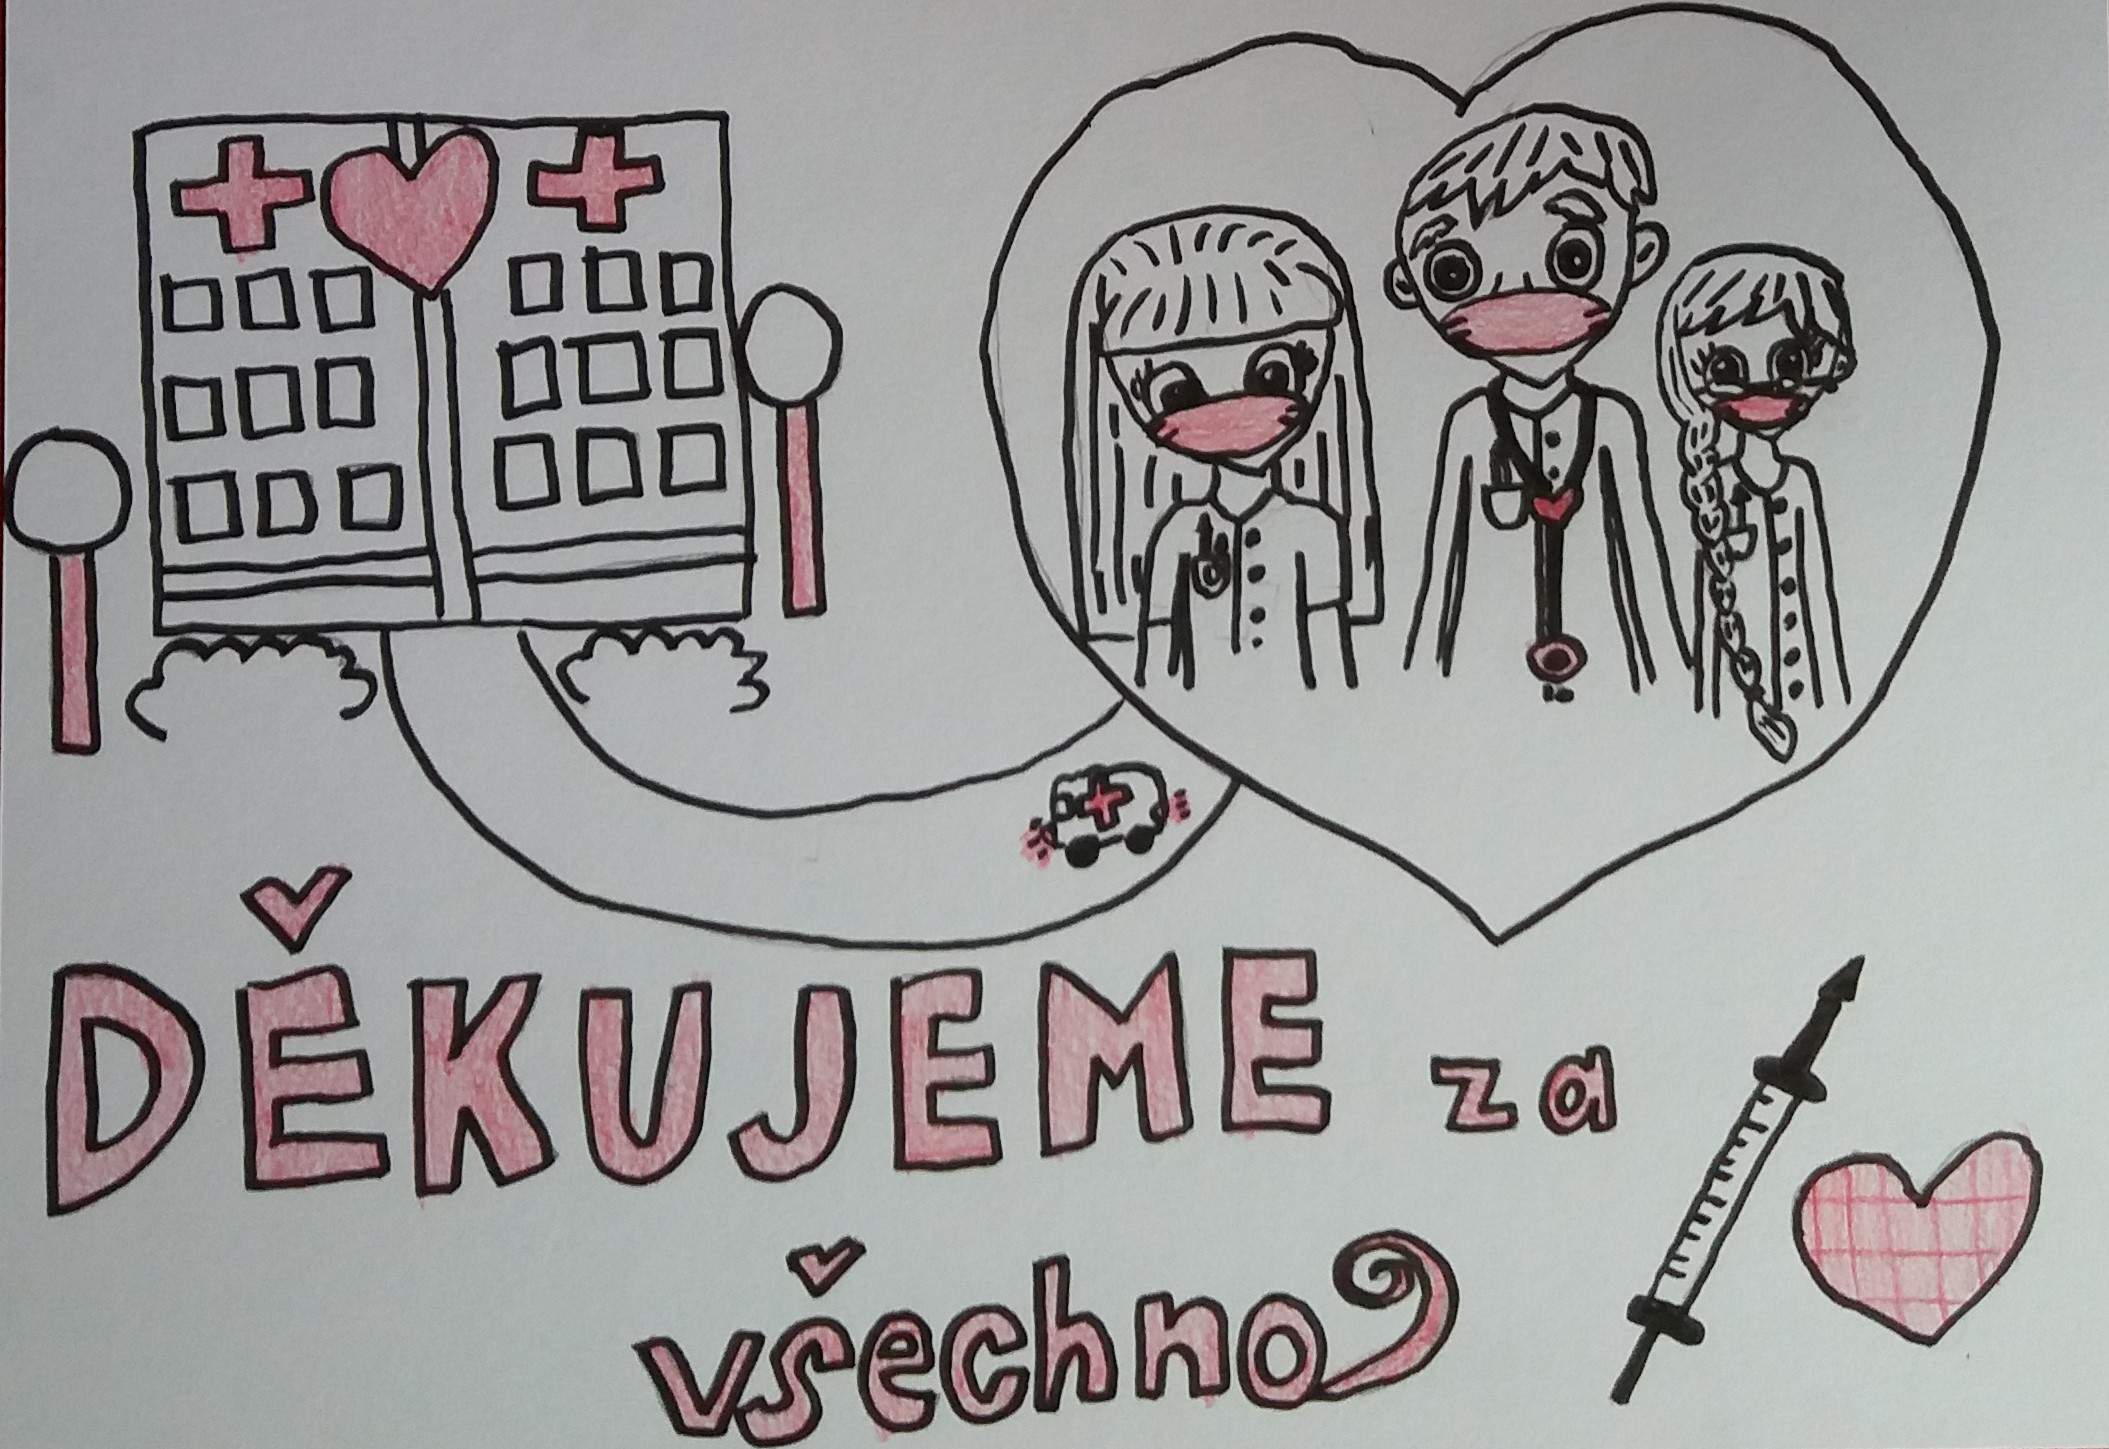 DĚKUJEME za
všechno